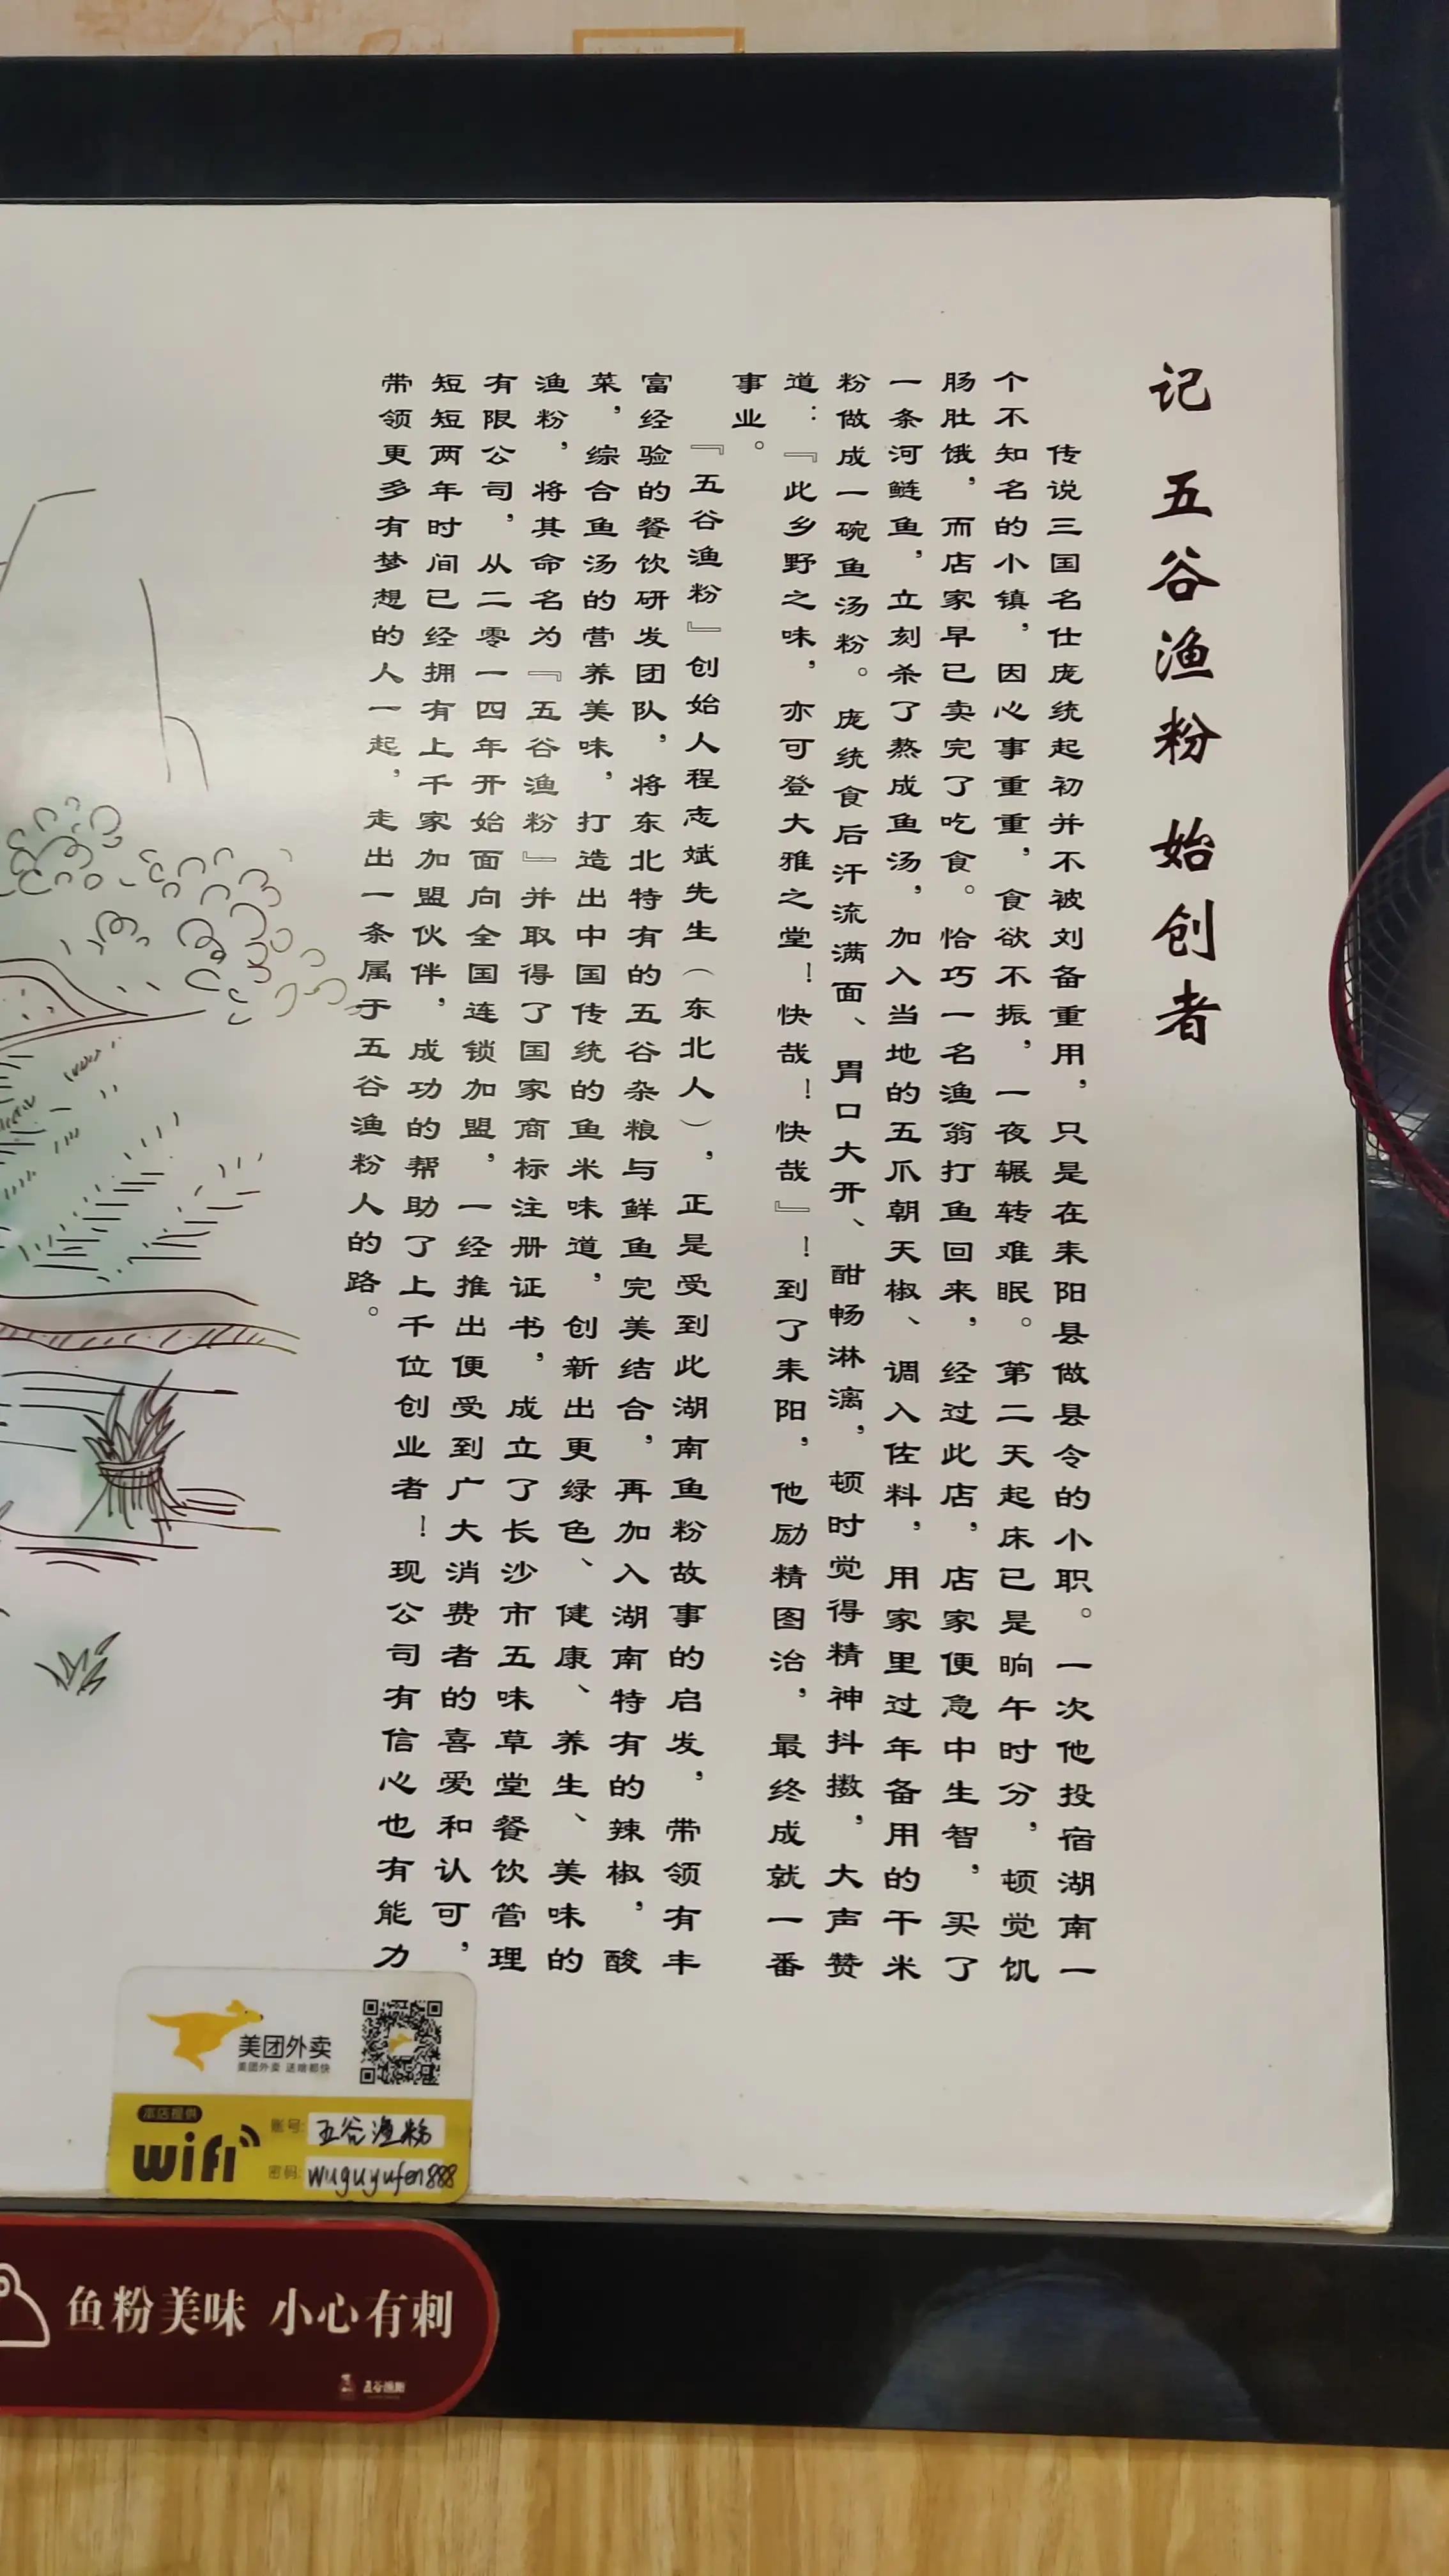 记 五谷渔粉 始创者
传说三国名仕庞统起初并不被刘备重用，只是在耒阳县做县令的小职。一次他投宿湖南一
个不知名的小镇，因心事重重，食欲不振，一夜辗转难眠。第二天起床已是晌午时分，顿觉饥
肠肚饿，而店家早已卖完了吃食。恰巧一名渔翁打鱼回来，经过此店，店家便急中生智，买了
一条河鲢鱼，立刻杀了熬成鱼汤，加入当地的五爪朝天椒、调入佐料，用家里过年备用的干米
粉做成一碗鱼汤粉。庞统食后汗流满面、胃口大开、酣畅淋漓，顿时觉得精神抖擞，大声赞
道：『此乡野之味，亦可登大雅之堂！快哉！快哉』！到了耒阳，他励精图治，最终成就一番
事业。
『五谷渔粉』创始人程志斌先生（东北人），正是受到此湖南鱼粉故事的启发，带领有丰
富经验的餐饮研发团队，将东北特有的五谷杂粮与鲜鱼完美结合，再加入湖南特有的辣椒，酸
菜，综合鱼汤的营养美味，打造出中国传统的鱼米味道，创新出更绿色、健康、养生、美味的
渔粉，将其命名为『五谷渔粉』并取得了国家商标注册证书，成立了长沙市五味草堂餐饮管理
有限公司，从二零一四年开始面向全国连锁加盟，一经推出便受到广大消费者的喜爱和认可，
短短两年时间已经拥有上千家加盟伙伴，成功的帮助了上千位创业者！现公司有信心也有能力
带领更多有梦想的人一起，走出一条属于五谷渔粉人的路。
美团外卖
美团外卖 送啥都快
本店提供
wifi
账号: 五谷渔粉
密码: wuguyufen888
鱼粉美味 小心有刺
五谷渔粉